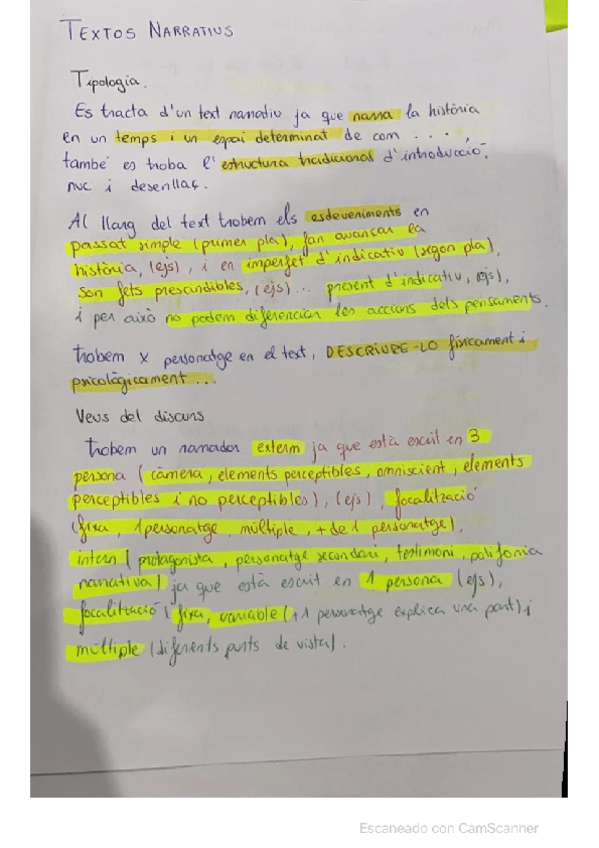 TEXTOS NARRATIUS
Tipologia.
Es tracta d'un text narratiu ja que narra la història
en un temps i un espai determinat de com . . . . ,
també es troba l'estructura tradicional d'introducció,
nuc i desenllaç.
Al llarg del text trobem els esdeveniments en
passat simple (primer pla), fan avançar la
història, (ejs), i en imperfet d'indicatiu (segon pla),
son fets prescindibles, (ejs)... present d'indicatiu, (ejs),
i per això no podem diferenciar les accions dels pensaments.
trobem x personatge en el text, DESCRIURE-LO físicament i
psicològicament...
Veus del discurs
trobem un narrador extern ja que està escrit en 3
persona (càmera, elements perceptibles, omniscient, elements
perceptibles i no perceptibles), (ejs), focalització
(fixa, 1 personatge, múltiple, + de 1 personatge).
intern (protagonista, personatge secundari, testimoni, polifonia
narrativa) ja que està escrit en 1 persona (ejs),
focalització fixa, variable (+1 personatge explica una part) i
múltiple (diferents punts de vista).
Escaneado con CamScanner